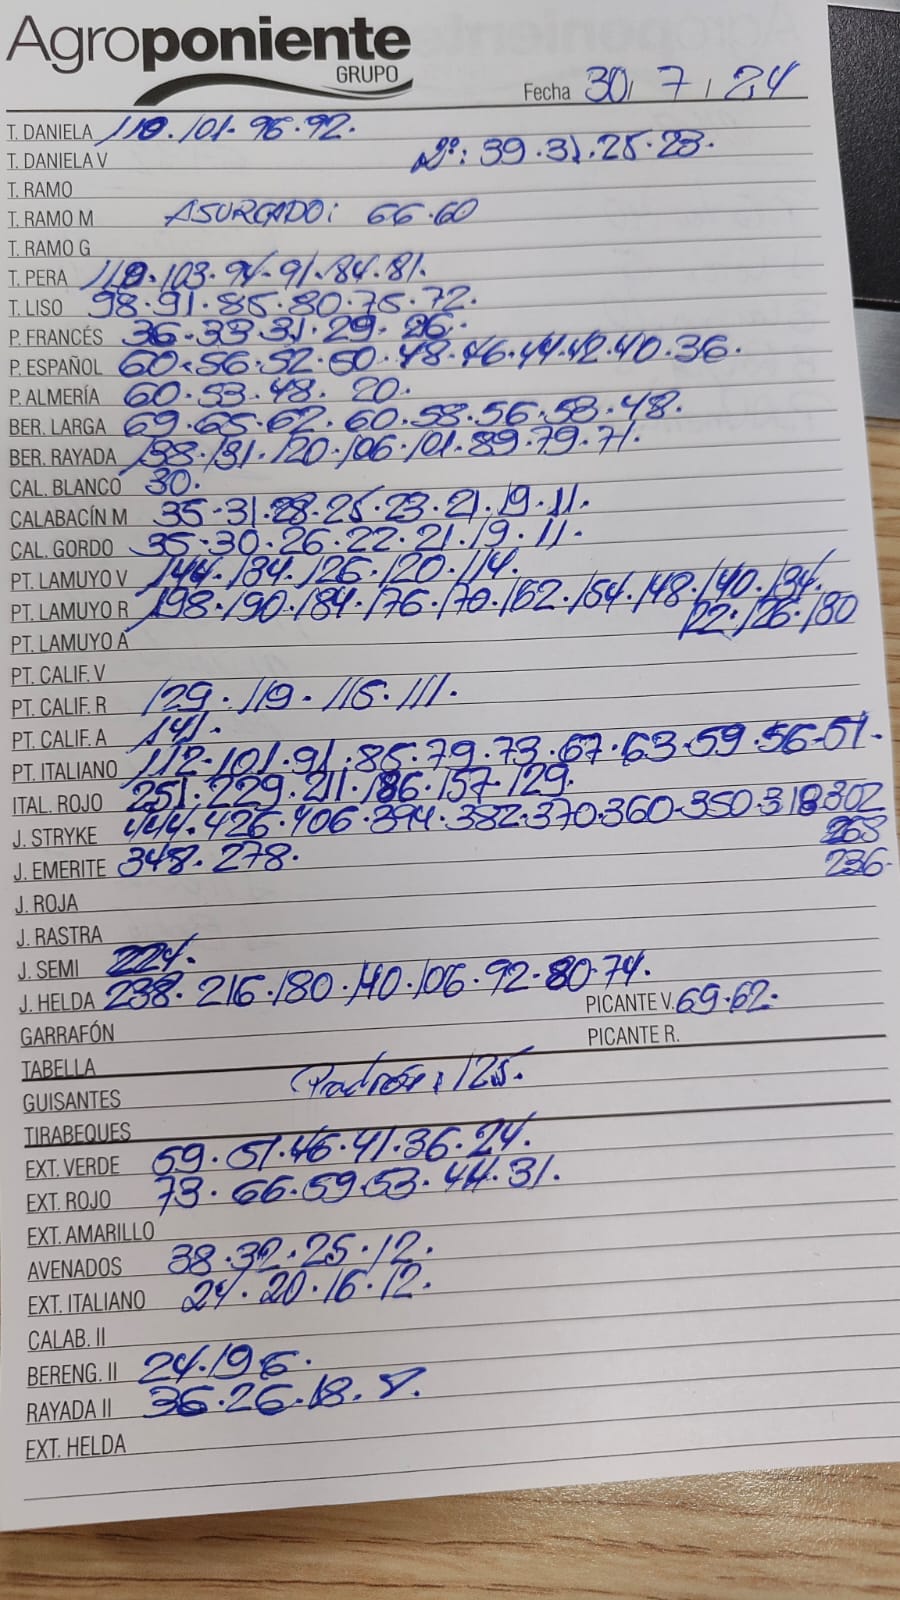 Agroponiente
GRUPO
Fecha 30/ 7 / 24
T. DANIELA 110. 101. 96. 92.
T. DANIELA V 2º: 39. 31. 25. 23.
T. RAMO
T. RAMO M ASURCADO: 66.60
T. RAMO G
T. PERA 110. 103. 94. 91. 84. 81.
T. LISO 98. 91. 85. 80. 75. 72.
P. FRANCÉS 36. 33. 31. 29. 26.
P. ESPAÑOL 60. 56. 52. 50. 48. 46. 44. 42. 40. 36.
P. ALMERÍA 60. 53. 48. 20.
BER. LARGA 69. 65. 62. 60. 58. 56. 53. 48.
BER. RAYADA 138. 131. 120. 106. 101. 89. 79. 71.
CAL. BLANCO 30.
CALABACÍN M 35. 31. 28. 25. 23. 21. 19. 11.
CAL. GORDO 35. 30. 26. 22. 21. 19. 11.
PT. LAMUYO V 144. 134. 126. 120. 114.
PT. LAMUYO R 198. 190. 184. 176. 170. 162. 154. 148. 140. 134.
122. 126. 130
PT. LAMUYO A
PT. CALIF. V
PT. CALIF. R 129. 119. 115. 111.
PT. CALIF. A 141.
PT. ITALIANO 112. 101. 91. 85. 79. 73. 67. 63. 59. 56. 51.
ITAL. ROJO 251. 229. 211. 186. 157. 129.
J. STRYKE 444. 426. 406. 394. 382. 370. 360. 350. 318 302
268
J. EMERITE 348. 278. 236.
J. ROJA
J. RASTRA
J. SEMI 224.
J. HELDA 238. 216. 180. 140. 106. 92. 80. 74.
PICANTE V. 69. 62.
GARRAFÓN PICANTE R.
TABELLA
GUISANTES Padrón: 125.
TIRABEQUES
EXT. VERDE 59. 51. 46. 41. 36. 24.
EXT. ROJO 73. 66. 59. 53. 44. 31.
EXT. AMARILLO
AVENADOS 38. 32. 25. 12.
EXT. ITALIANO 24. 20. 16. 12.
CALAB. II
BERENG. II 24. 19 6.
RAYADA II 36. 26. 18. 8.
EXT. HELDA